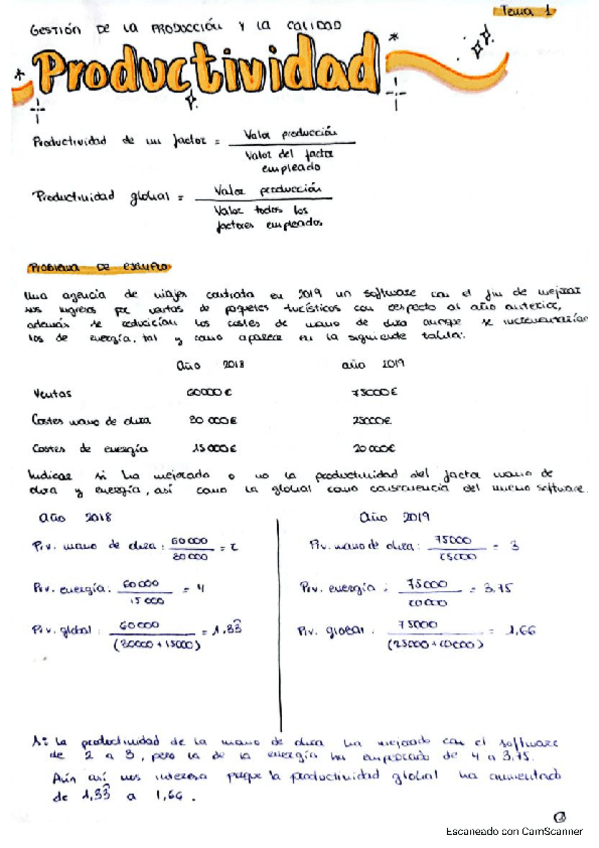 Tema 1
GESTIÓN DE LA PRODUCCIÓN Y LA CALIDAD
Productividad
Productividad de un factor = Valor producción
Valor del factor
empleado
Productividad global = Valor producción
Valor todos los
factores empleados
PROBLEMA DE EJEMPLO
Una agencia de viajes contrata en 2019 un software con el fin de mejorar
sus ingresos por ventas de paquetes turísticos con respecto al año anterior,
además se reducirían los costes de mano de obra aunque se incrementarían
los de energía, tal y como aparece en la siguiente tabla:
año 2018 año 2019
Ventas 60000€ 75000€
Costes mano de obra 30 000€ 25000€
Costes de energía 15000€ 20000€
Indicar si ha mejorado o no la productividad del factor mano de
obra y energía, así como la global como consecuencia del nuevo software.
año 2018 año 2019
Prv. mano de obra: 60000 / 30000 = 2 Prv. mano de obra: 75000 / 25000 = 3
Prv. energía: 60000 / 15000 = 4 Prv. energía: 75000 / 20000 = 3,75
Prv. global: 60000 / (30000 + 15000) = 1,33 Prv. global: 75000 / (25000 + 20000) = 1,66
La productividad de la mano de obra ha mejorado con el software
de 2 a 3, pero la de la energía ha empeorado de 4 a 3,75.
Aún así nos interesa porque la productividad global ha aumentado
de 1,33 a 1,66.
Escaneado con CamScanner